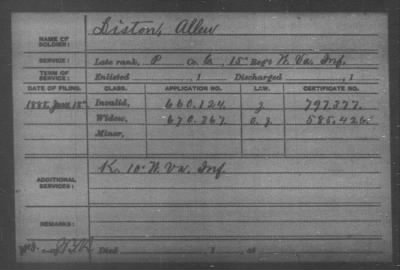 NAME OF SOLDIER: Liston, Allen
SERVICE: Late rank, P Co. C, 15" Reg't W. Va. Inf.
TERM OF SERVICE: Enlisted , 1 Discharged , 1
DATE OF FILING. CLASS. APPLICATION NO. LAW. CERTIFICATE NO.
1885, June 18" Invalid, 660.124. J 797.377.
Widow, 670.367. O. J. 585.426.
Minor,
ADDITIONAL SERVICES: K. 10" W. Va. Inf.
REMARKS:
Died , 1 , at